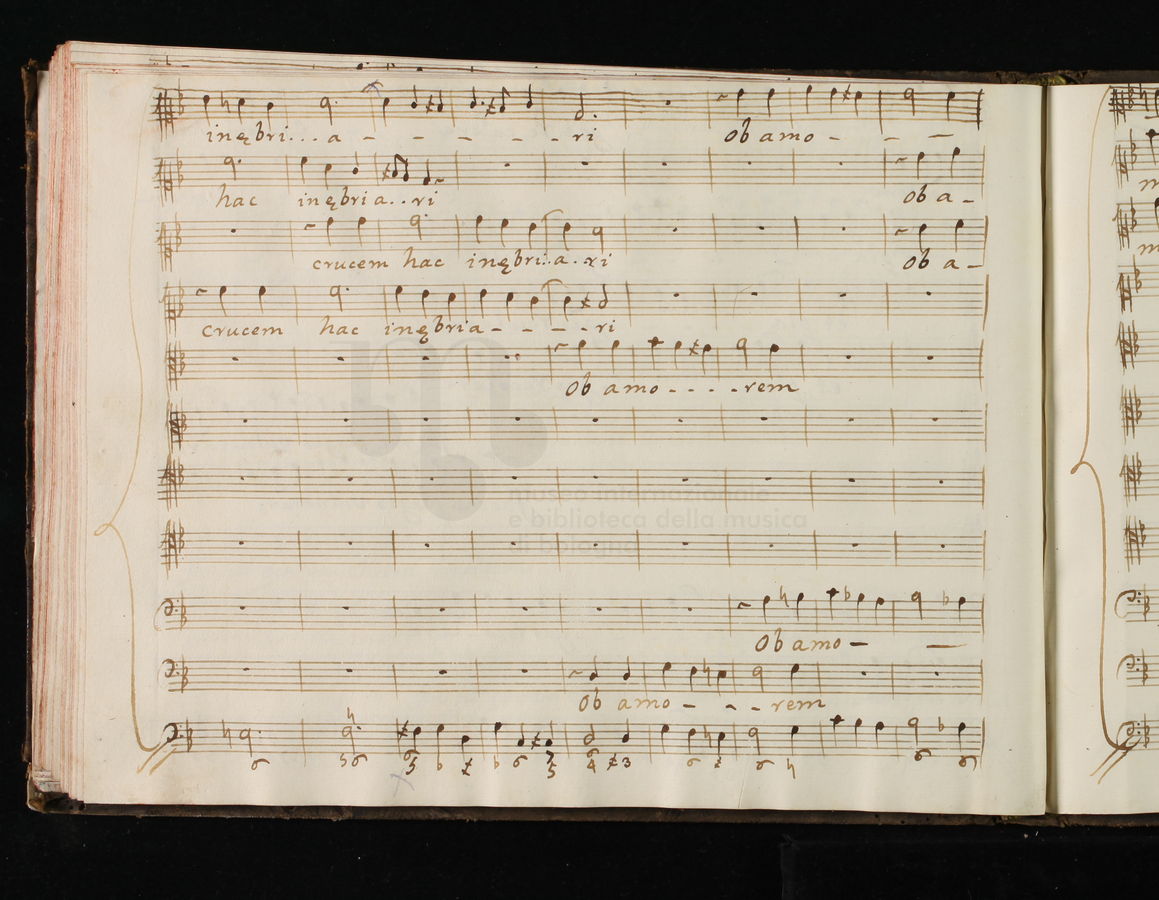 inębri... a - - - - - - ri ob amo - - -
hac inębria..ri ob a-
crucem hac inębri..a.ri ob a-
crucem hac inębria - - - - ri
ob amo - - - - rem
museo internazionale
e biblioteca della musica
di bologna
ob amo - -
ob amo - - - rem
6 56 6 5 b b 6 7 5 6 4 3 6 6 6 6